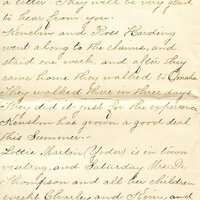 a letter. They will be very glad
to hear from you.
and Ross Harding
went along to the
staid one week, and after they
came home they walked to Omaha
They walked there in three days
They did it just for the experience
has grown a good deal
this Summer.
Lottie Martin (Yoder) is in town
visiting, and Saturday Mrs. D.
Thompson and all her children
except Charley and and